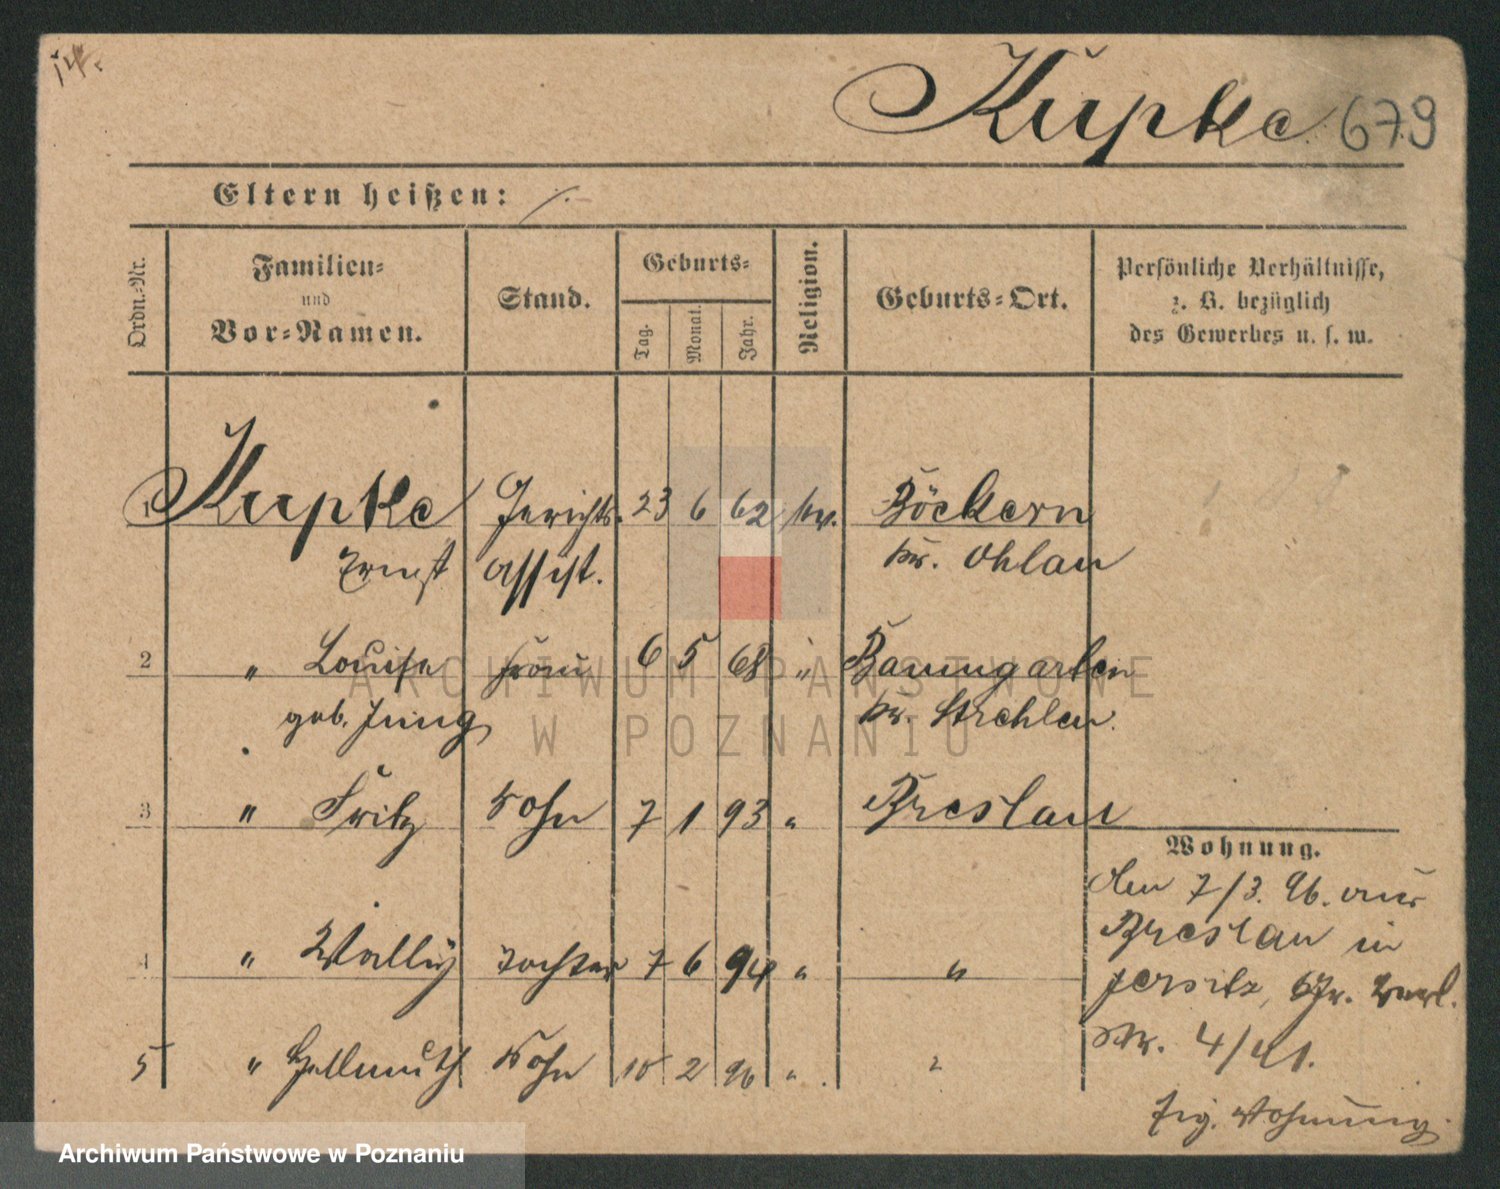 14.
Kupke 679
Eltern heißen: ⁒
Ordn.-Nr.
Familien-
und
Vor-Namen.
Stand.
Geburts-
Tag.
Monat.
Jahr.
Religion.
Geburts-Ort.
Persönliche Verhältnisse,
z. B. bezüglich
des Gewerbes u. s. w.
1 Kupke Gerichts- 23 6 62 ev. Böckern
Ernst assist. Kr. Ohlau
2 " Louise Frau 6 5 68 " Baumgarten
geb. Jung Kr. Strehlen.
3 " Fritz Sohn 7 1 93 " Breslau
4 " Wally Tochter 7 6 94 " "
5 " Hellmuth Sohn 10 2 96 " "
Wohnung.
den 7/3. 96. aus
Breslau in
Jersitz, Gr. Berl.
Str. 4/41.
Eig. Wohnung.
ARCHIWUM PAŃSTWOWE
W POZNANIU
Archiwum Państwowe w Poznaniu